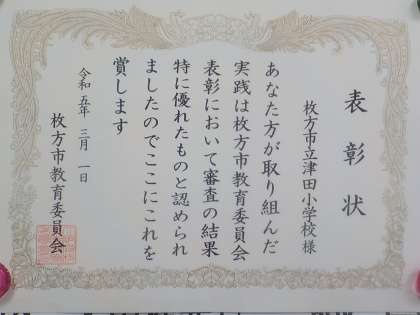 表彰状
枚方市立津田小学校様
あなた方が取り組んだ
実践は枚方市教育委員会
表彰において審査の結果
特に優れたものと認められ
ましたのでここにこれを
賞します
令和五年三月一日
枚方市教育委員会